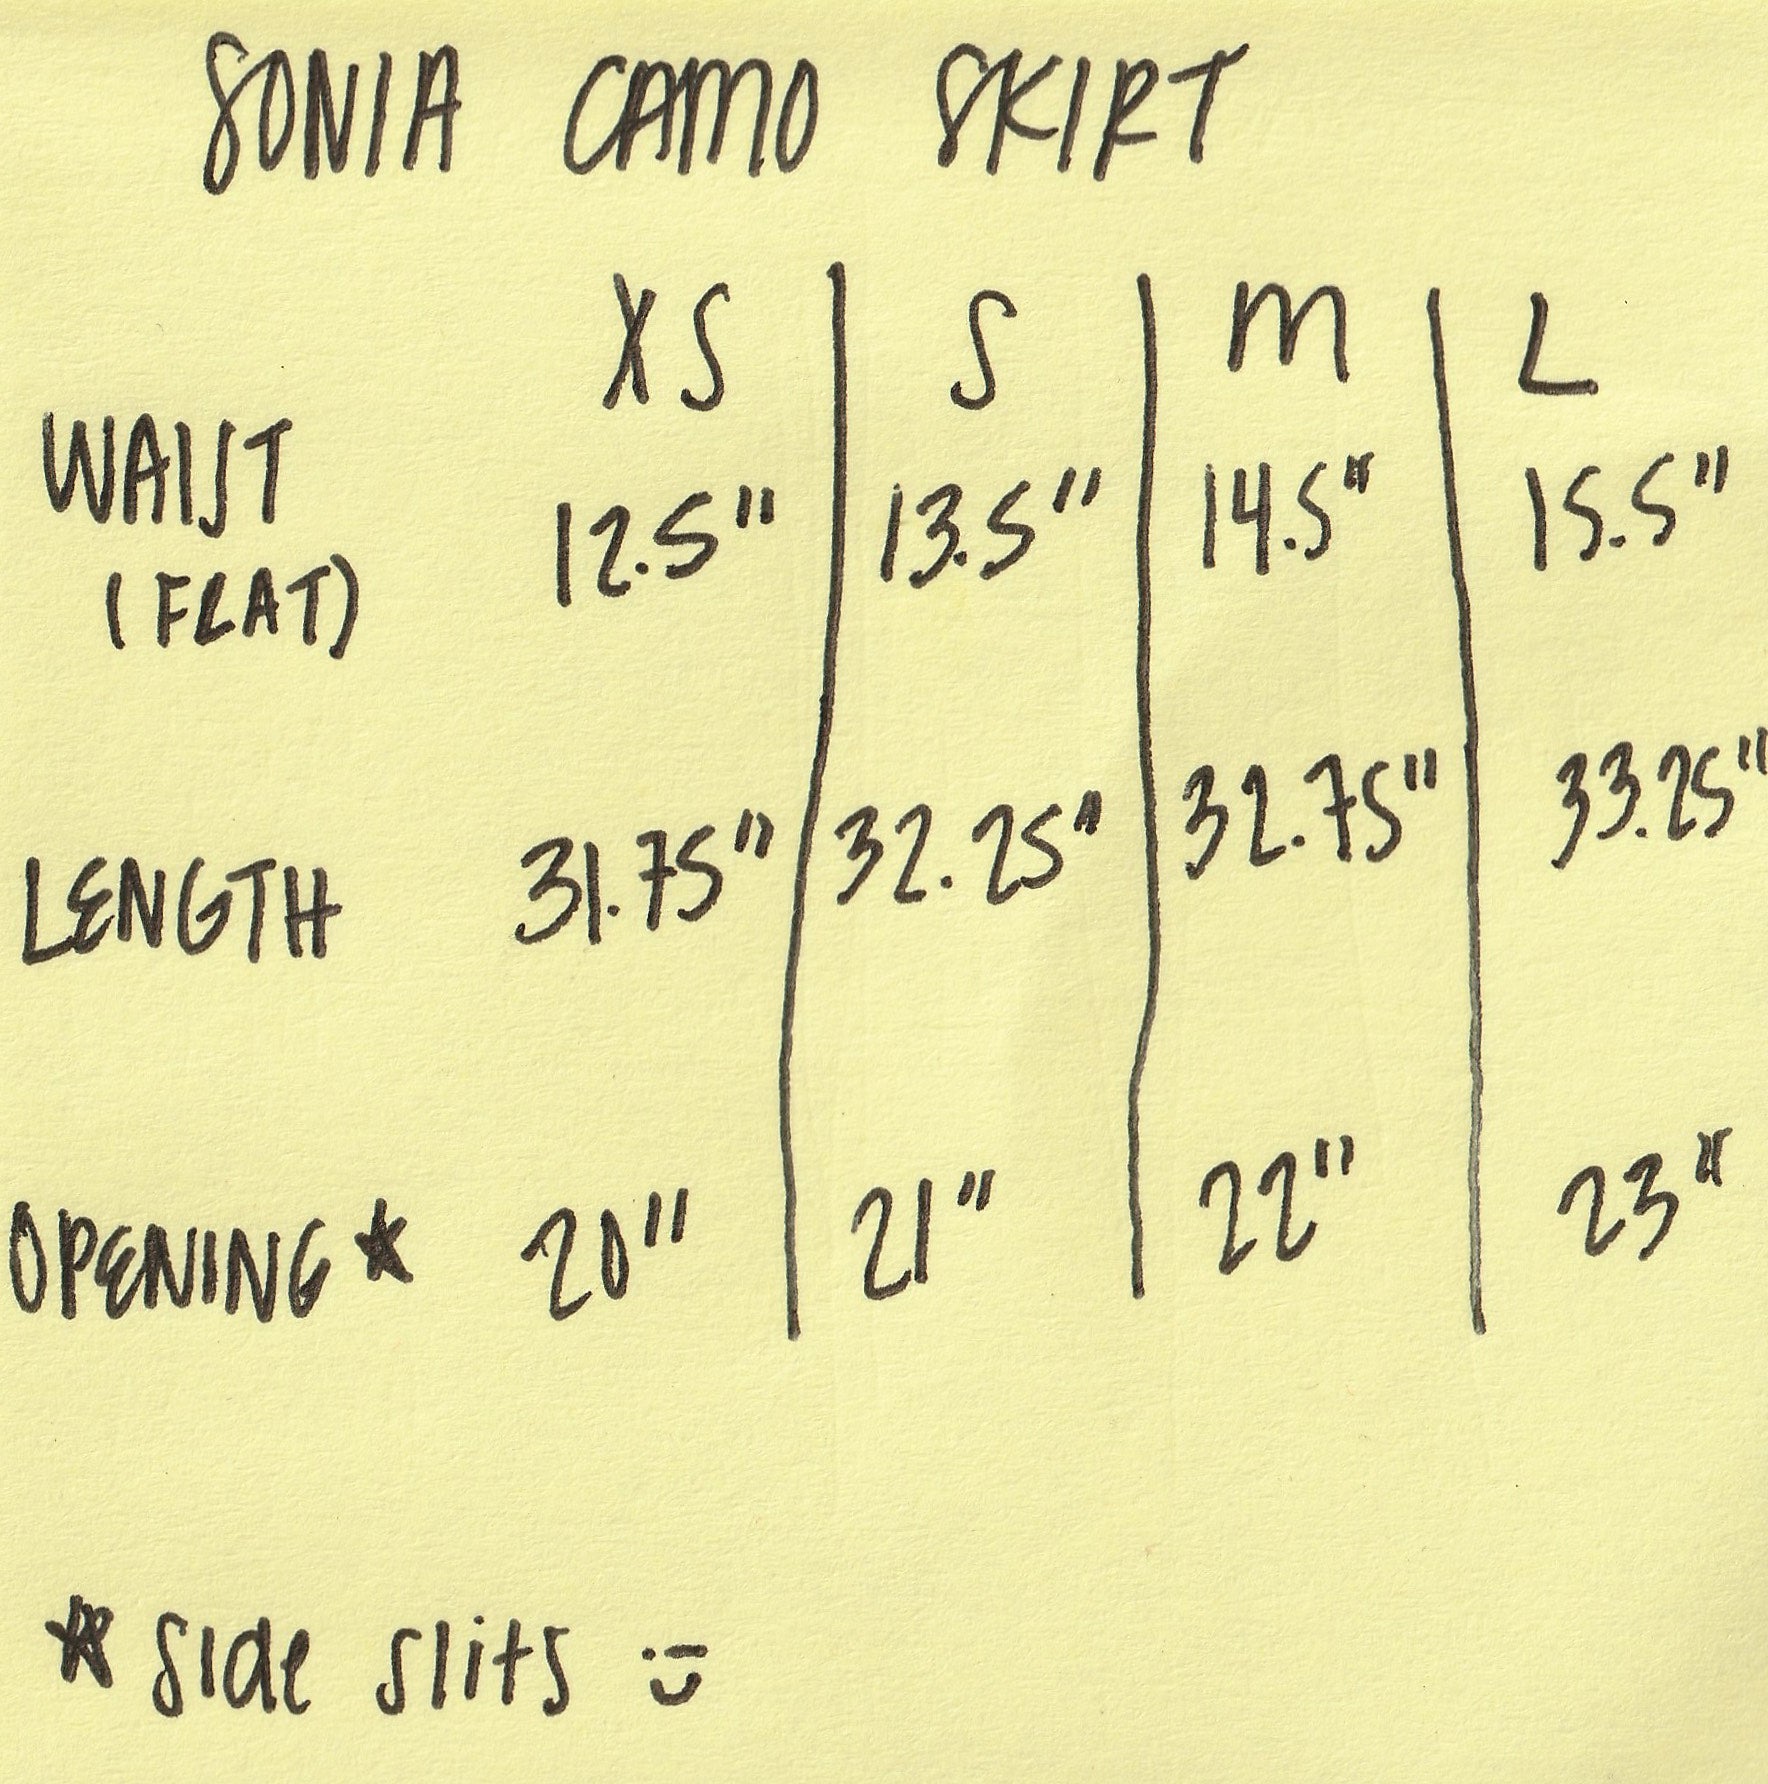 SONIA CAMO SKIRT
XS S M L
WAIST 12.5" 13.5" 14.5" 15.5"
(FLAT)
LENGTH 31.75" 32.25" 32.75" 33.25"
OPENING* 20" 21" 22" 23"
* side slits :)